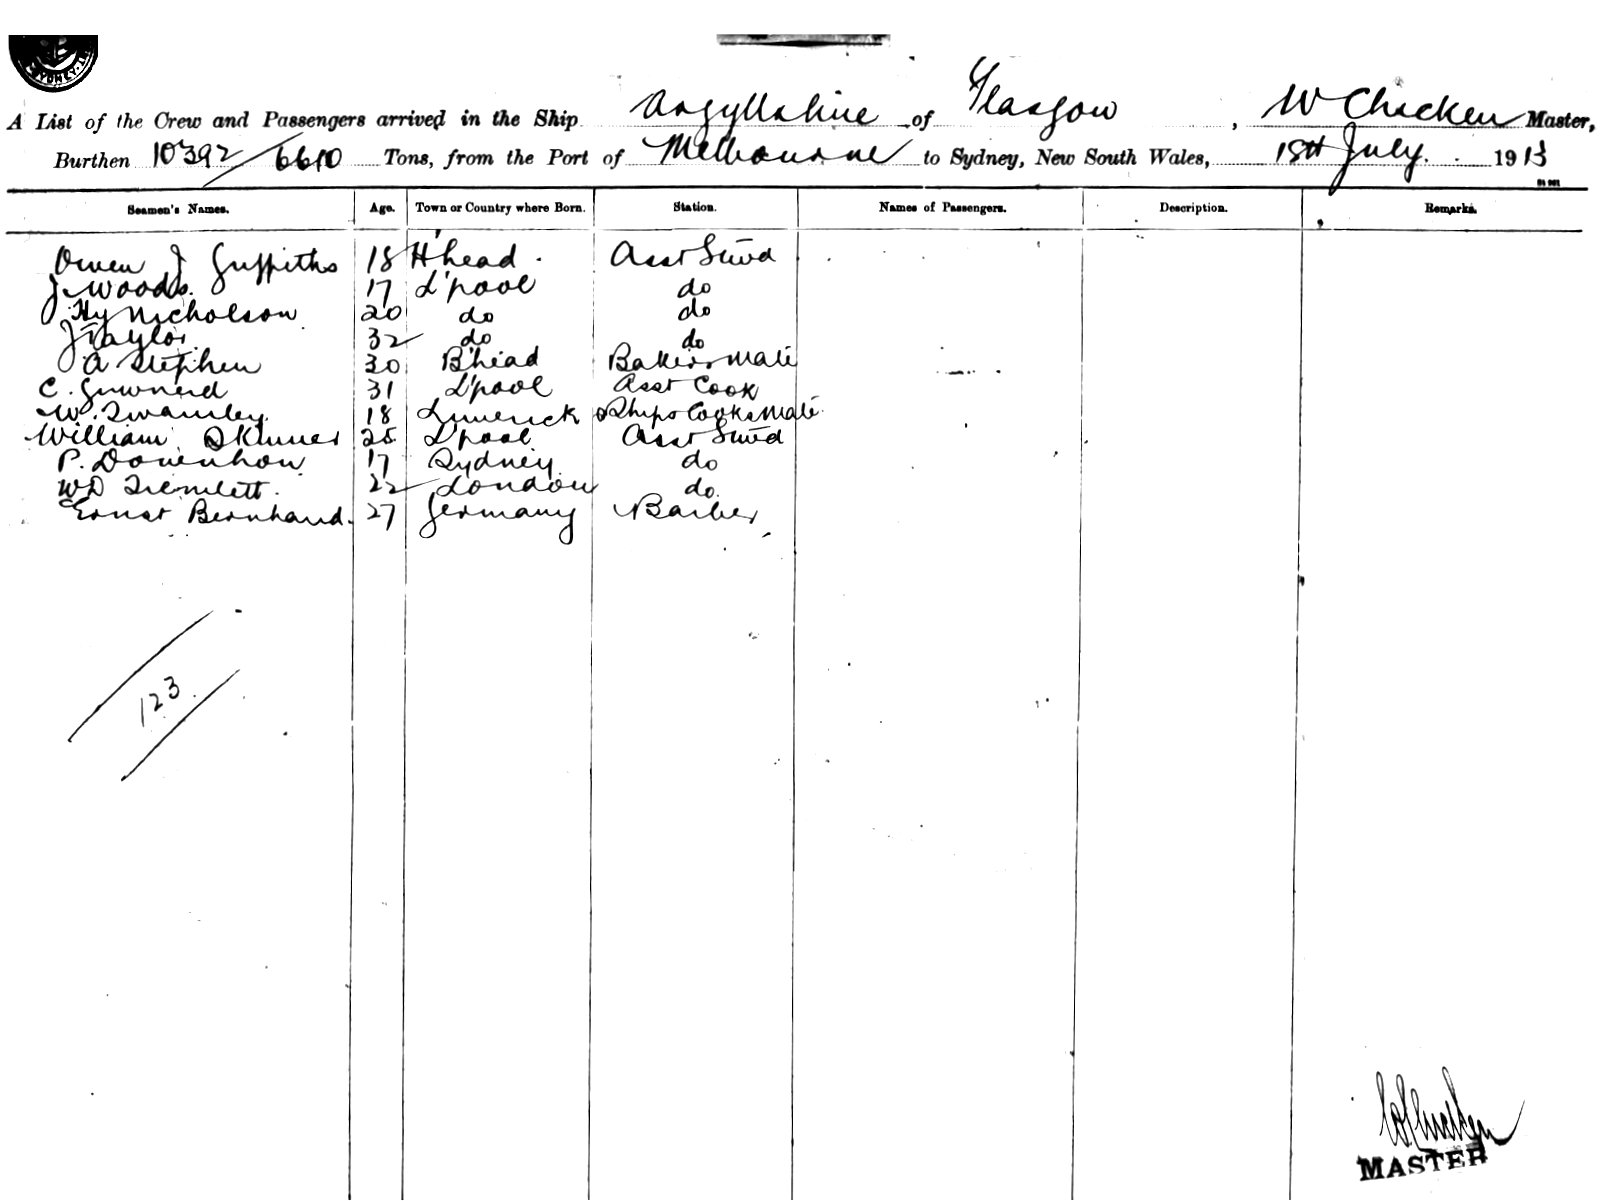 SYDNEY
A List of the Crew and Passengers arrived in the Ship Argyllshire of Glasgow, W Chicken Master,
Burthen 10392/6610 Tons, from the Port of Melbourne to Sydney, New South Wales, 18th July. 1913
Seamen's Names. Age. Town or Country where Born. Station. Names of Passengers. Description. Remarks.
Owen J Griffiths 18 H'head. Asst Stwd
J Woods. 17 L'pool do
Hy Nicholson 20 do do
J Taylor 32 do do
A Stephen 30 B'head Bakers Mate
C. 31 L'pool Asst Cook
W. Swamley 18 Limerick Ships Cooks Mate
William Skinner 25 L'pool Asst Stwd
P. 17 Sydney do
WD Tremlett. 22 London do
Ernst Bernhard. 27 Germany Barber
123
W Chicken
MASTER